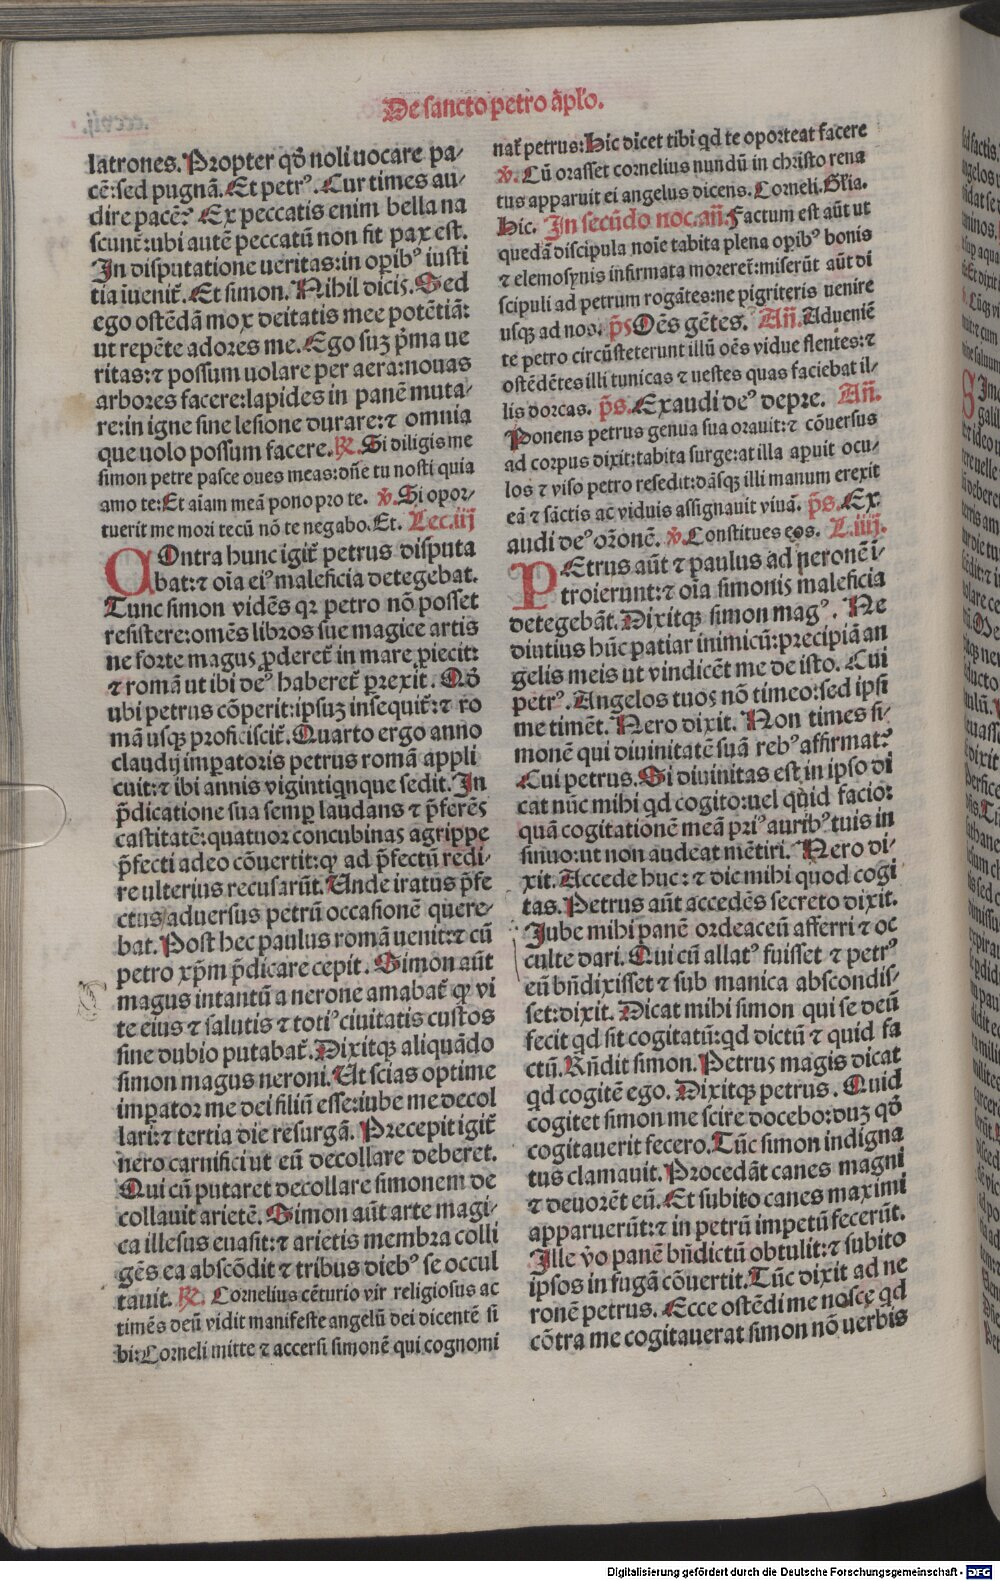 De sancto petro aplo.
latrones. Propter qđ noli uocare pa-
cē: sed pugnā. Et petrꝰ. Cur times au-
dire pacē? Ex peccatis enim bella na
scunt̄: ubi autē peccatū non fit pax est.
In disputatione ueritas: in oꝑibꝰ iusti
tia iuenit̄. Et simon. Nihil dicis. Sed
ego ostēdā mox deitatis mee potētiā:
ut repēte adores me. Ego suꝫ p̄ma ue
ritas: ⁊ possum uolare per aera: nouas
arbores facere: lapides in panē muta-
re: in igne sine lesione durare: ⁊ omnia
que uolo possum facere. ℞. Si diligis me
simon petre pasce oues meas: dn̄e tu nosti quia
amo te: Et aīam meā pono pro te. ℣. Si opor-
tuerit me mori tecū nō te negabo. Et. Lec. iij
COntra hunc igit̄ petrus disputa
bat: ⁊ oīa eiꝰ maleficia detegebat.
Tunc simon vidēs qꝛ petro nō posset
resistere: omēs libros sue magice artis
ne forte magus ꝓderet̄ in mare ꝓiecit:
⁊ romā ut ibi deꝰ haberet̄ ꝑrexit. Qđ
ubi petrus cōperit: ipsuꝫ insequit̄: ⁊ ro
mā usqꝫ proficiscit̄. Quarto ergo anno
claudij imꝑatoris petrus romā appli
cuit: ⁊ ibi annis vigintiqnque sedit. In
p̄dicatione sua semꝑ laudans ⁊ p̄ferēs
castitatē: quatuor concubinas agrippe
p̄fecti adeo cōuertit: qꝙ ad p̄fectū redi-
re ulterius recusarūt. Unde iratus p̄fe
ctus aduersus petrū occasionē quere-
bat. Post hec paulus romā uenit: ⁊ cū
petro xp̄m p̄dicare cepit. Simon aūt
magus intantū a nerone amabat̄ ꝙ vi
te eius ⁊ salutis ⁊ totiꝰ ciuitatis custos
sine dubio putabat̄. Dixitqꝫ aliquādo
simon magus neroni. Ut scias optime
imꝑator me dei filiū esse: iube me decol
lari: ⁊ tertia die resurgā. Precepit igit̄
nero carnifici ut eū decollare deberet.
Qui cū putaret decollare simonem de
collauit arietē. Simon aūt arte magi-
ca illesus euasit: ⁊ arietis membra colli
gēs ea abscōdit ⁊ tribus diebꝰ se occul
tauit. ℞. Cornelius cēturio vir religiosus ac
timēs deū vidit manifeste angelū dei dicentē si
bi: Corneli mitte ⁊ accersi simonē qui cognomi
nat̄ petrus: Hic dicet tibi qd te oporteat facere
℣. Cū orasset cornelius nundū in christo rena
tus apparuit ei angelus dicens. Corneli. Glia.
Hic. In secūdo noc. an̄. Factum est aūt ut
quedā discipula noīe tabita plena oꝑibꝰ bonis
⁊ elemosynis infirmata moreret̄: miserūt aūt di
scipuli ad petrum rogātes: ne pigriteris uenire
usqꝫ ad nos. p̄s Oēs gētes. An̄. Adueniē
te petro circūsteterunt illū oēs vidue flentes: ⁊
ostēdētes illi tunicas ⁊ uestes quas faciebat il-
lis dorcas. p̄s. Exaudi deꝰ depre. An̄.
Ponens petrus genua sua orauit: ⁊ cōuersus
ad corpus dixit: tabita surge: at illa aꝑuit ocu-
los ⁊ viso petro resedit: dāsqꝫ illi manum erexit
eā ⁊ sāctis ac viduis assignauit viuā. p̄s. Ex
audi deꝰ orōnē. ℣. Constitues eos. L. iiij.
PEtrus aūt ⁊ paulus ad neronē i-
troierunt: ⁊ oīa simonis maleficia
detegebāt. Dixitqꝫ simon magꝰ. Ne
diutius hūc patiar inimicū: precipiā an
gelis meis ut vindicēt me de isto. Cui
petrꝰ. Angelos tuos nō timeo: sed ipsi
me timēt. Nero dixit. Non times si-
monē qui diuinitatē suā rebꝰ affirmat?
Cui petrus. Si diuinitas est in ipso di
cat nūc mihi qd cogito: uel quid facio:
quā cogitationē meā priꝰ auribꝰ tuis in
sinuo: ut non audeat mētiri. Nero di-
xit. Accede huc: ⁊ dic mihi quod cogi
tas. Petrus aūt accedēs secreto dixit.
Jube mihi panē ordeaceū afferri ⁊ oc
culte dari. Qui cū allatꝰ fuisset ⁊ petrꝰ
eū bn̄dixisset ⁊ sub manica abscondis-
set: dixit. Dicat mihi simon qui se deū
fecit qd sit cogitatū: qd dictū ⁊ quid fa
ctū. Rn̄dit simon. Petrus magis dicat
qd cogitē ego. Dixitqꝫ petrus. Quid
cogitet simon me scire docebo: duꝫ qđ
cogitauerit fecero. Tūc simon indigna
tus clamauit. Procedāt canes magni
⁊ deuorēt eū. Et subito canes maximi
apparuerūt: ⁊ in petrū impetū fecerūt.
Ille v̊o panē bn̄dictū obtulit: ⁊ subito
ipsos in fugā cōuertit. Tūc dixit ad ne
ronē petrus. Ecce ostēdi me nosce qd
cōtra me cogitauerat simon nō uerbis
Digitalisierung gefördert durch die Deutsche Forschungsgemeinschaft - DFG